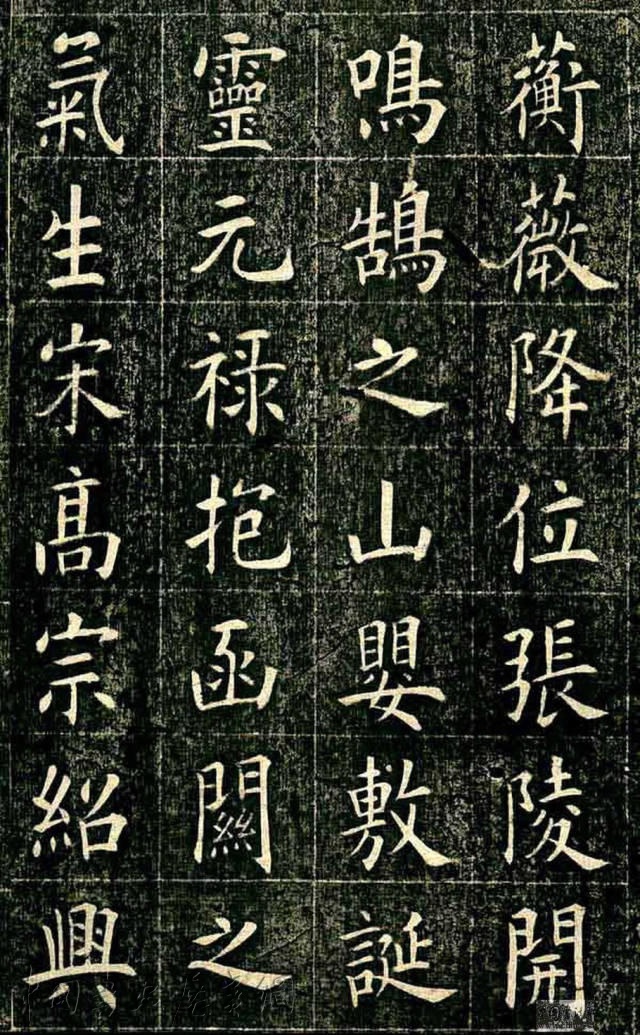 蘅薇降位張陵開
鳴鵠之山嬰敷誕
靈元禄抱函關之
氣生宋髙宗紹興